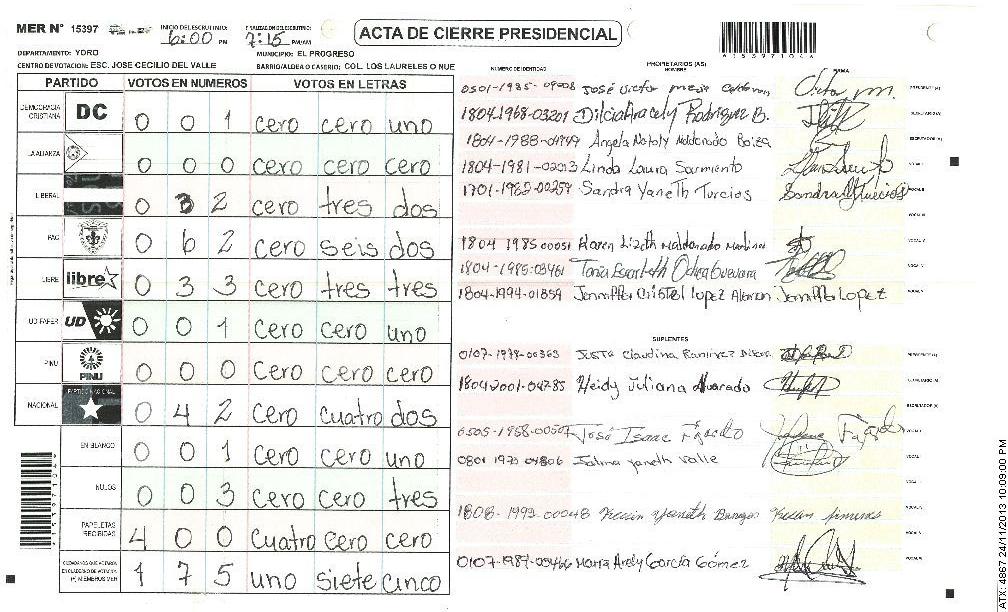 MER N° 15397 INICIO DEL ESCRUTINIO: 6:00 PM FINALIZACION DEL ESCRUTINIO: 7:15 PM/AM ACTA DE CIERRE PRESIDENCIAL
DEPARTAMENTO: YORO MUNICIPIO: EL PROGRESO
CENTRO DE VOTACION: ESC. JOSE CECILIO DEL VALLE BARRIO/ALDEA O CASERIO: COL. LOS LAURELES O NUE
PARTIDO VOTOS EN NUMEROS VOTOS EN LETRAS
DEMOCRACIA CRISTIANA DC 0 0 1 cero cero uno
LA ALIANZA 0 0 0 cero cero cero
LIBERAL 0 3 2 cero tres dos
PAC 0 6 2 cero seis dos
LIBRE libre 0 3 3 cero tres tres
UD FAPER UD 0 0 1 cero cero uno
PINU PINU 0 0 0 cero cero cero
NACIONAL PARTIDO NACIONAL 0 4 2 cero cuatro dos
EN BLANCO 0 0 1 cero cero uno
NULOS 0 0 3 cero cero tres
PAPELETAS RECIBIDAS 4 0 0 cuatro cero cero
CIUDADANOS QUE VOTARON EN CUADERNO DE VOTACION (+) MIEMBROS MER 1 7 5 uno siete cinco
NUMERO DE IDENTIDAD PROPIETARIOS (AS) NOMBRE FIRMA
0501-1985-09008 José Victor mejia PRESIDENTE (A)
1804-1968-03201 Dilcia Aracely Rodriguez B. SECRETARIO (A)
1804-1988-04499 Angela Nataly Maldonado ESCRUTADOR (A)
1804-1981-02213 Linda Laura Sarmiento VOCAL I
1701-1982-00259 Sandra Yaneth Turcios Sandra Y Turcios VOCAL II
VOCAL III
1804 1985 00051 Karen Lizeth Maldonado VOCAL IV
1804-1985-03461 Tania VOCAL V
1804-1994-01859 Jenniffer Cristel Lopez Jenniffer Lopez VOCAL VI
SUPLENTES
0107-1979-00363 Justa Claudina Ramirez PRESIDENTE (A)
1804-2001-04785 Heidy Juliana Alvarado SECRETARIO (A)
ESCRUTADOR (A)
0505-1958-00507 José Isaac Fajardo VOCAL I
0801 1973 04806 yaneth Valle VOCAL II
VOCAL III
1808-1992-00048 yaneth VOCAL IV
VOCAL V
0107-1987-03466 Maria Arely García Gómez VOCAL VI
ATX: 4867 24/11/2013 10:09:00 PM